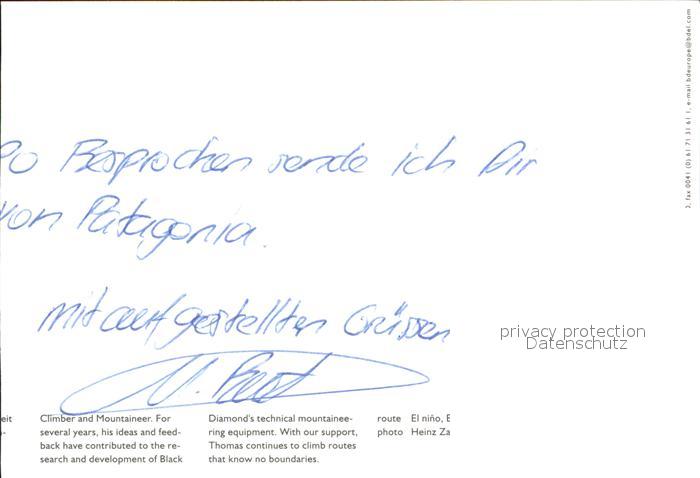 2, fax 0041 (0) 61 71 31 61 1, e-mail bdeurope@bdel.com
Besprochen sende ich Dir
von Patagonia.
mit aufgestellten Grüssen
privacy protection
Datenschutz
eit
Climber and Mountaineer. For
several years, his ideas and feed-
back have contributed to the re-
search and development of Black
Diamond's technical mountainee-
ring equipment. With our support,
Thomas continues to climb routes
that know no boundaries.
route El niño, E
photo Heinz Za